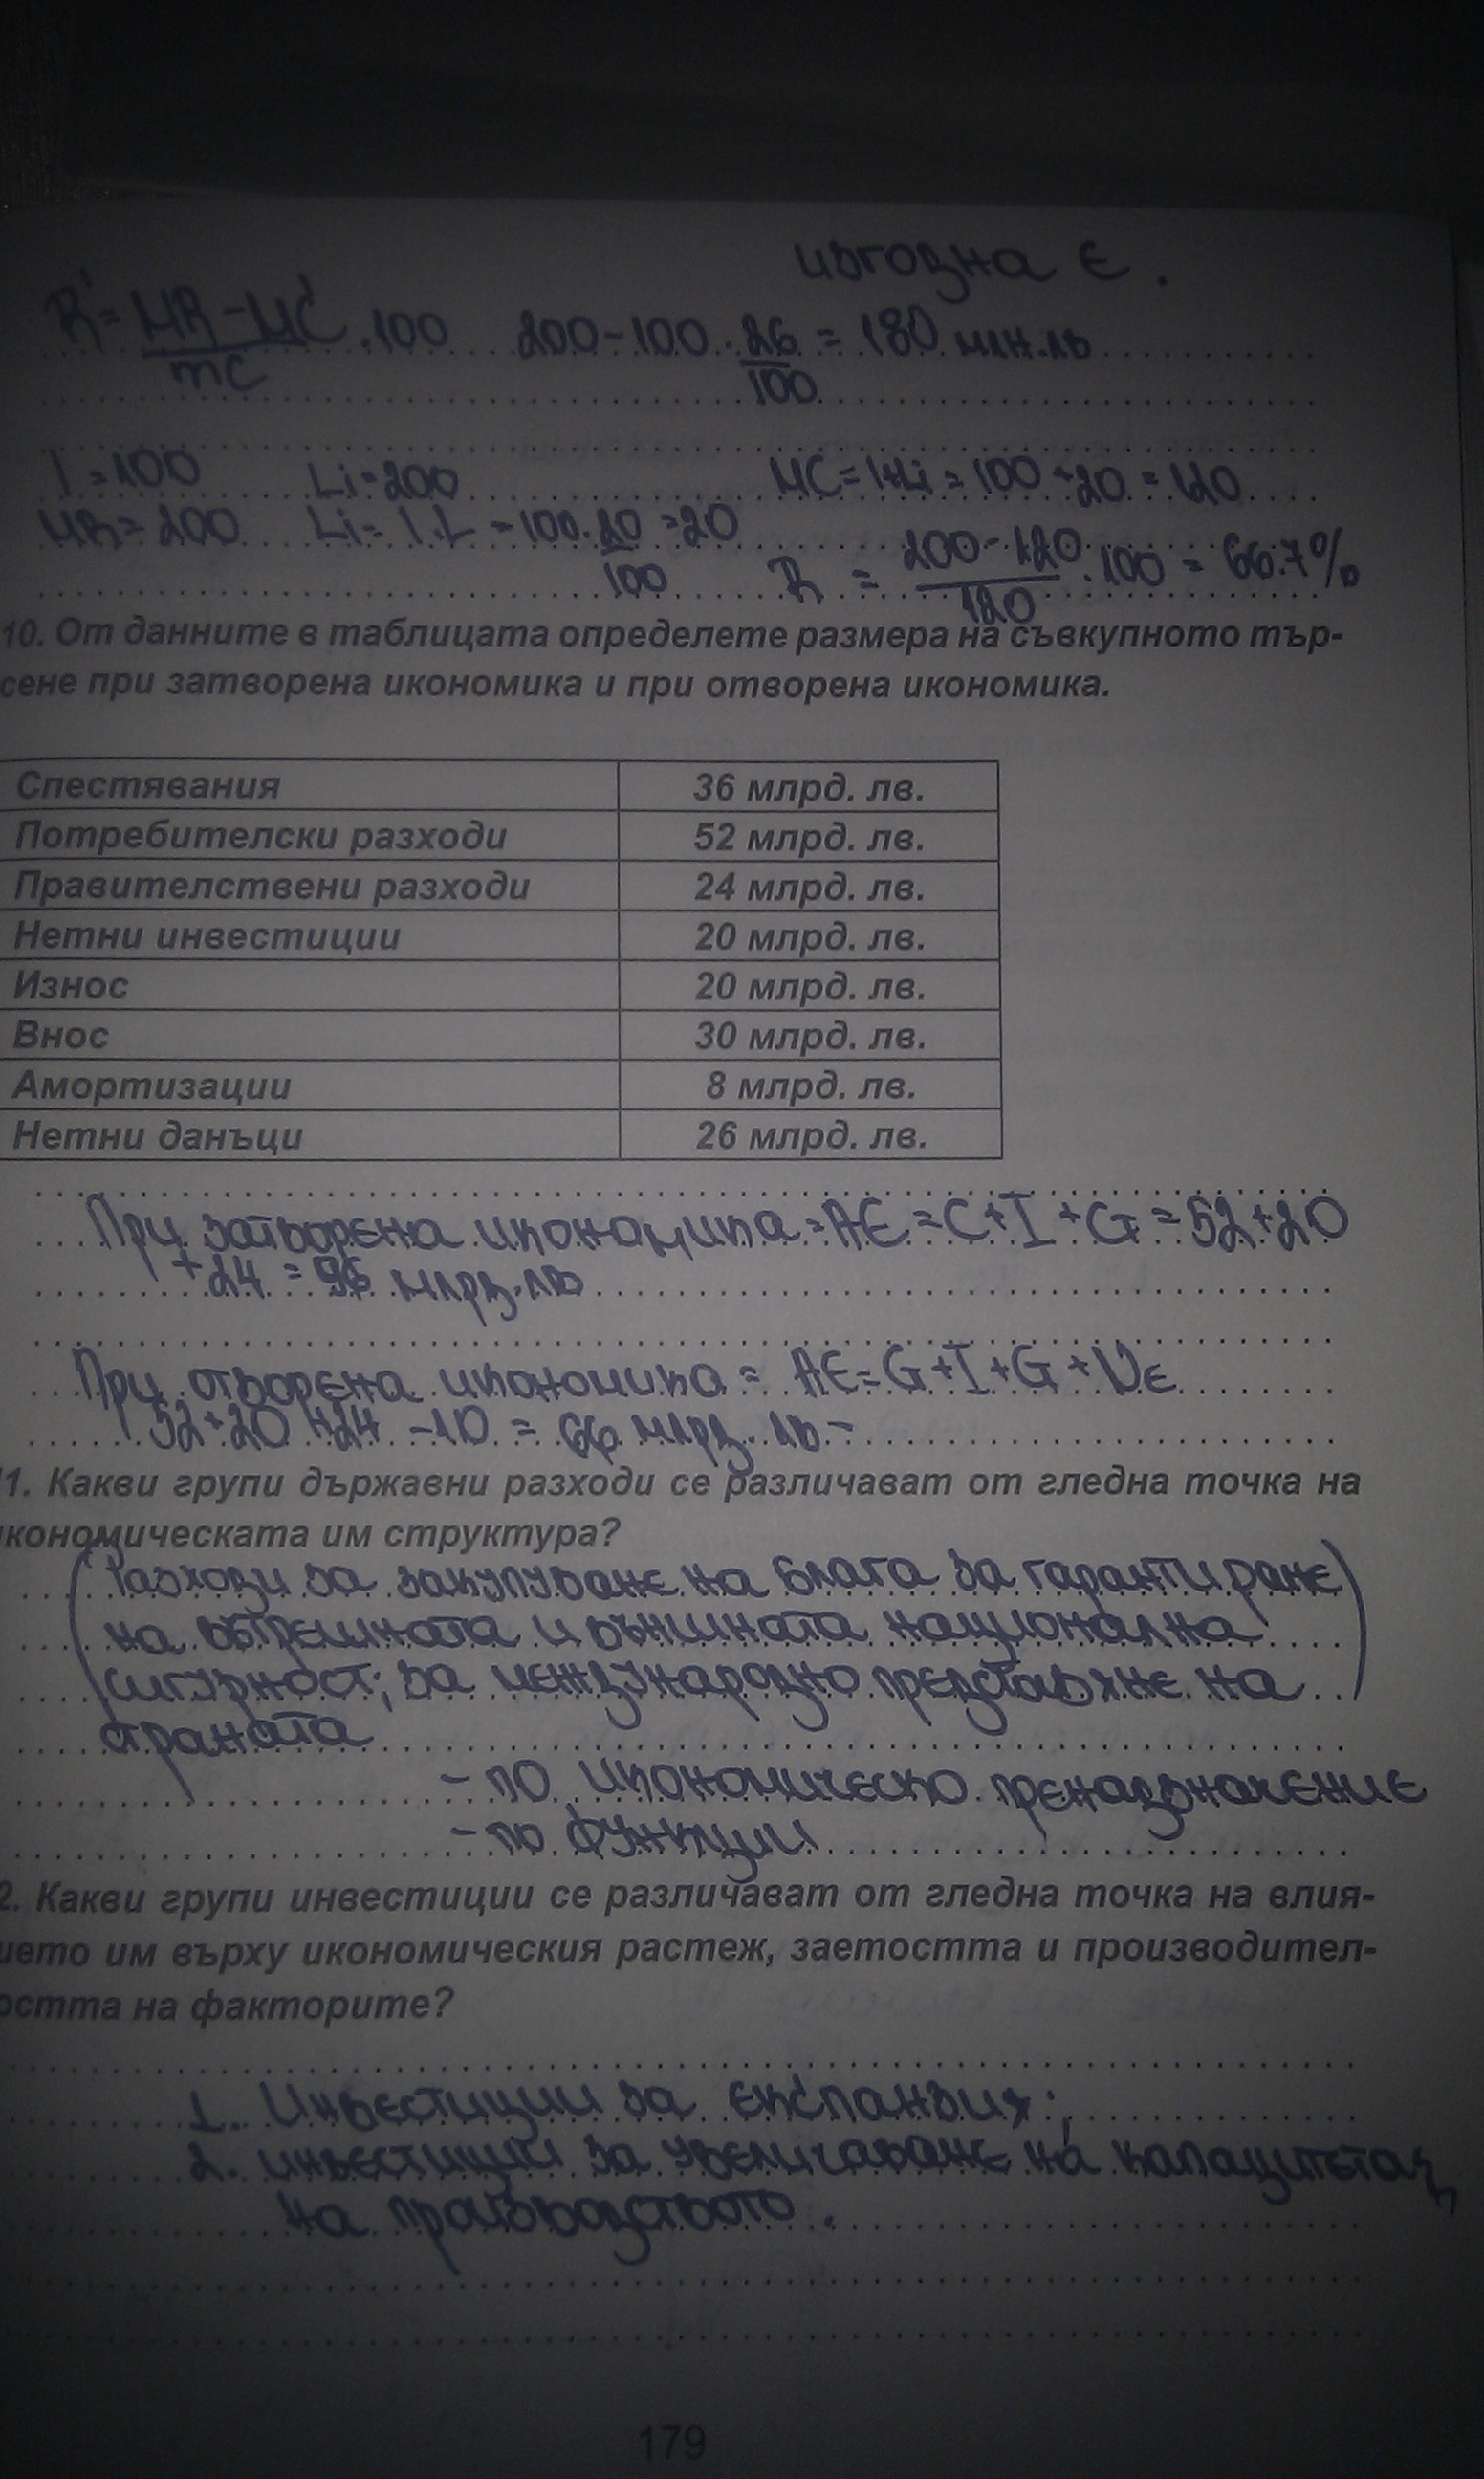 изгодна е.
R' = MR - MC / mC .100 200-100. 26/100 = 180 млн.лв
I = 100 Li = 200 MC = I+Li = 100 + 20 = 120
MR = 200 Li = I.L = 100. 20/100 = 20
R = 200 - 120 / 120 .100 = 66.7%
10. От данните в таблицата определете размера на съвкупното тър-
сене при затворена икономика и при отворена икономика.
Спестявания 36 млрд. лв.
Потребителски разходи 52 млрд. лв.
Правителствени разходи 24 млрд. лв.
Нетни инвестиции 20 млрд. лв.
Износ 20 млрд. лв.
Внос 30 млрд. лв.
Амортизации 8 млрд. лв.
Нетни данъци 26 млрд. лв.
При затворена икономика = AE = C+I+G = 52+20
+24 = 96 млрд.лв
При отворена икономика = AE = G+I+G+NE
52+20+24 -10 = 66 млрд. лв -
1. Какви групи държавни разходи се различават от гледна точка на
икономическата им структура?
(Разходи за закупуване на блага за гарантиране
на вътрешната и външната национална
сигурност; за международно представяне на)
страната
- по икономическо пренадзначение
- по функции
2. Какви групи инвестиции се различават от гледна точка на влия-
ието им върху икономическия растеж, заетостта и производител-
остта на факторите?
1. Инвестиции за експанзия;
2. инвестиции за увеличаване на капацитета
на производството.
179